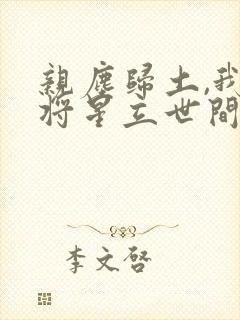 親塵歸土,我
將星立世間
李文啓